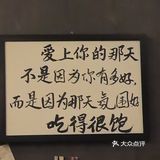 爱上你的那天
不是因为你有多好，
而是因为那天氛围好
吃得很饱
大众点评